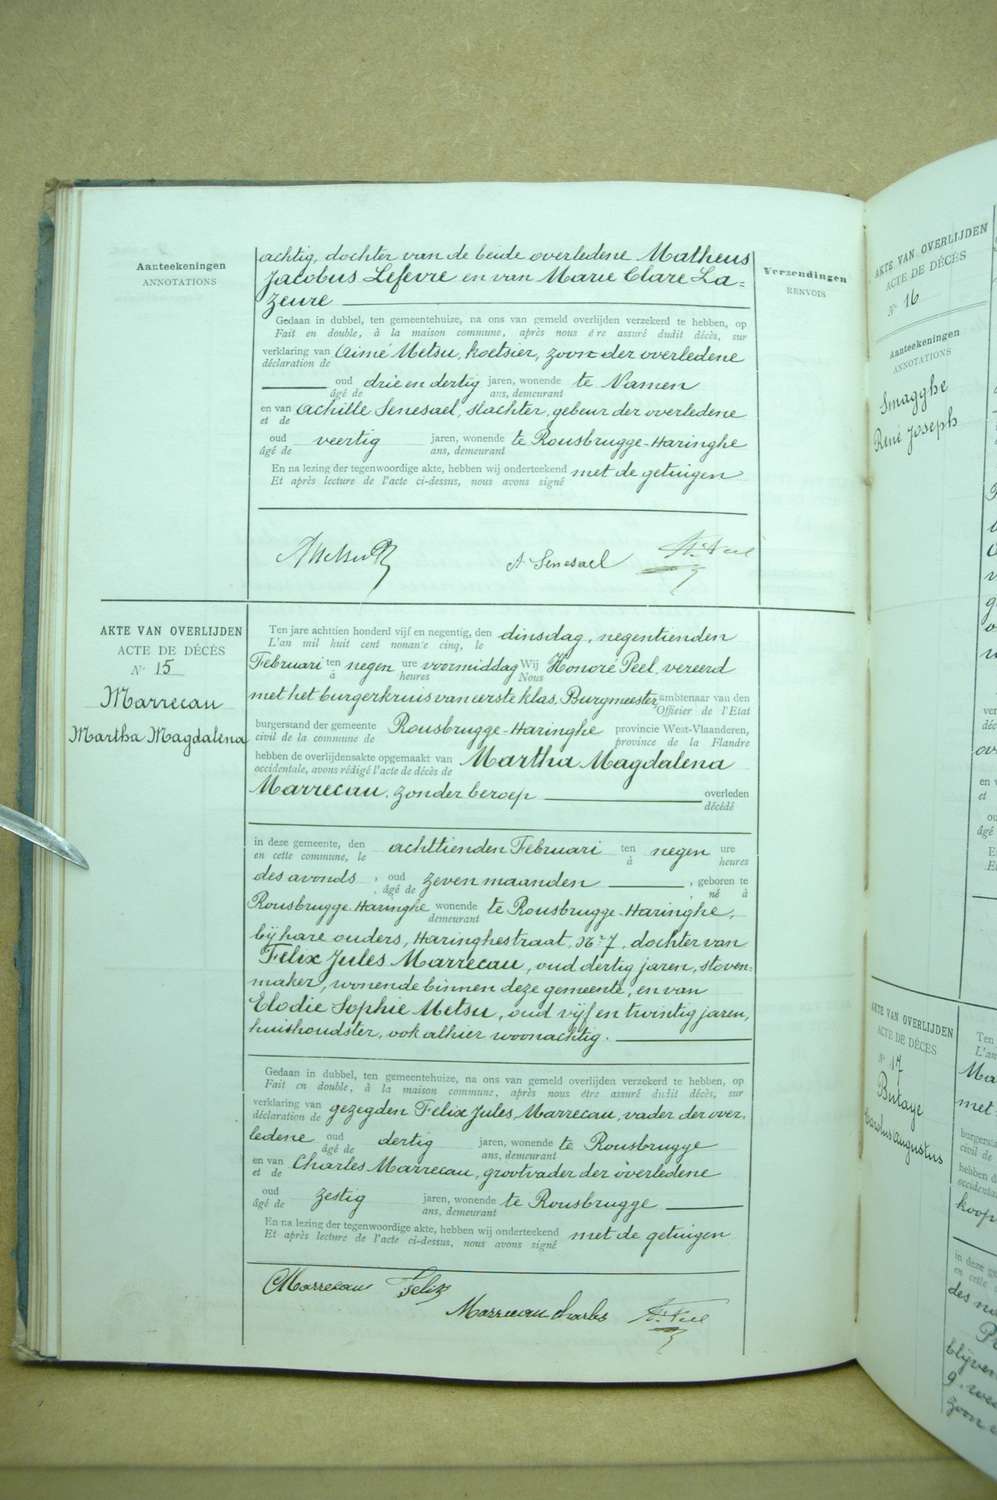 Aanteekeningen
ANNOTATIONS
achtig, dochter van de beide overledene Matheus
Jacobus Lefevre en van Marie Clare La=
zeure
Gedaan in dubbel, ten gemeentehuize, na ons van gemeld overlijden verzekerd te hebben, op
Fait en double, à la maison commune, après nous être assuré dudit décès, sur
verklaring van Aimé Metsu, koetsier, zoon der overledene
déclaration de
oud drie en dertig jaren, wonende te Namen
âgé de ans, demeurant
en van Achille Senesael, slachter, gebeur der overledene
et de
oud veertig jaren, wonende te Rousbrugge-Haringhe
âgé de ans, demeurant
En na lezing der tegenwoordige akte, hebben wij onderteekend met de getuigen
Et après lecture de l'acte ci-dessus, nous avons signé
A. Senesael
Verzendingen
RENVOIS
AKTE VAN OVERLIJDEN
ACTE DE DÉCÈS
N° 15
Marrecau
Martha Magdalena
Ten jare achttien honderd vijf en negentig, den dinsdag, negentienden
L'an mil huit cent nonante cinq, le
Februari ten negen ure voormiddag Wij Honoré Peel, vereerd
à heures Nous
met het burgerkruis van eerste klas, Burgmeester, ambtenaar van den
Officier de l'Etat
burgerstand der gemeente Rousbrugge-Haringhe provincie West-Vlaanderen,
civil de la commune de province de la Flandre
hebben de overlijdensakte opgemaakt van Martha Magdalena
occidentale, avons rédigé l'acte de décès de
Marrecau, zonder beroep overleden
décédé
in deze gemeente, den achttienden Februari ten negen ure
en cette commune, le à heures
des avonds, oud zeven maanden, geboren te
âgé de né à
Rousbrugge-Haringhe wonende te Rousbrugge-Haringhe,
demeurant
bij hare ouders, Haringhestraat, N° 7, dochter van
Felix Jules Marrecau, oud dertig jaren, stoven=
maker, wonende binnen deze gemeente, en van
Elodie Sophie Metsu, oud vijf en twintig jaren,
huishoudster, ook alhier woonachtig.
Gedaan in dubbel, ten gemeentehuize, na ons van gemeld overlijden verzekerd te hebben, op
Fait en double, à la maison commune, après nous être assuré dudit décès, sur
verklaring van gezegden Felix Jules Marrecau, vader der over=
déclaration de
ledene oud dertig jaren, wonende te Rousbrugge
âgé de ans, demeurant
en van Charles Marrecau, grootvader der overledene
et de
oud zestig jaren, wonende te Rousbrugge
âgé de ans, demeurant
En na lezing der tegenwoordige akte, hebben wij onderteekend met de getuigen
Et après lecture de l'acte ci-dessus, nous avons signé
Marrecau Felix
Marrecau Charles
AKTE VAN OVERLIJDEN
ACTE DE DÉCÈS
N° 16
Aanteekeningen
ANNOTATIONS
Smagghe
René Joseph
AKTE VAN OVERLIJDEN
ACTE DE DÉCÈS
N° 17
Butaye